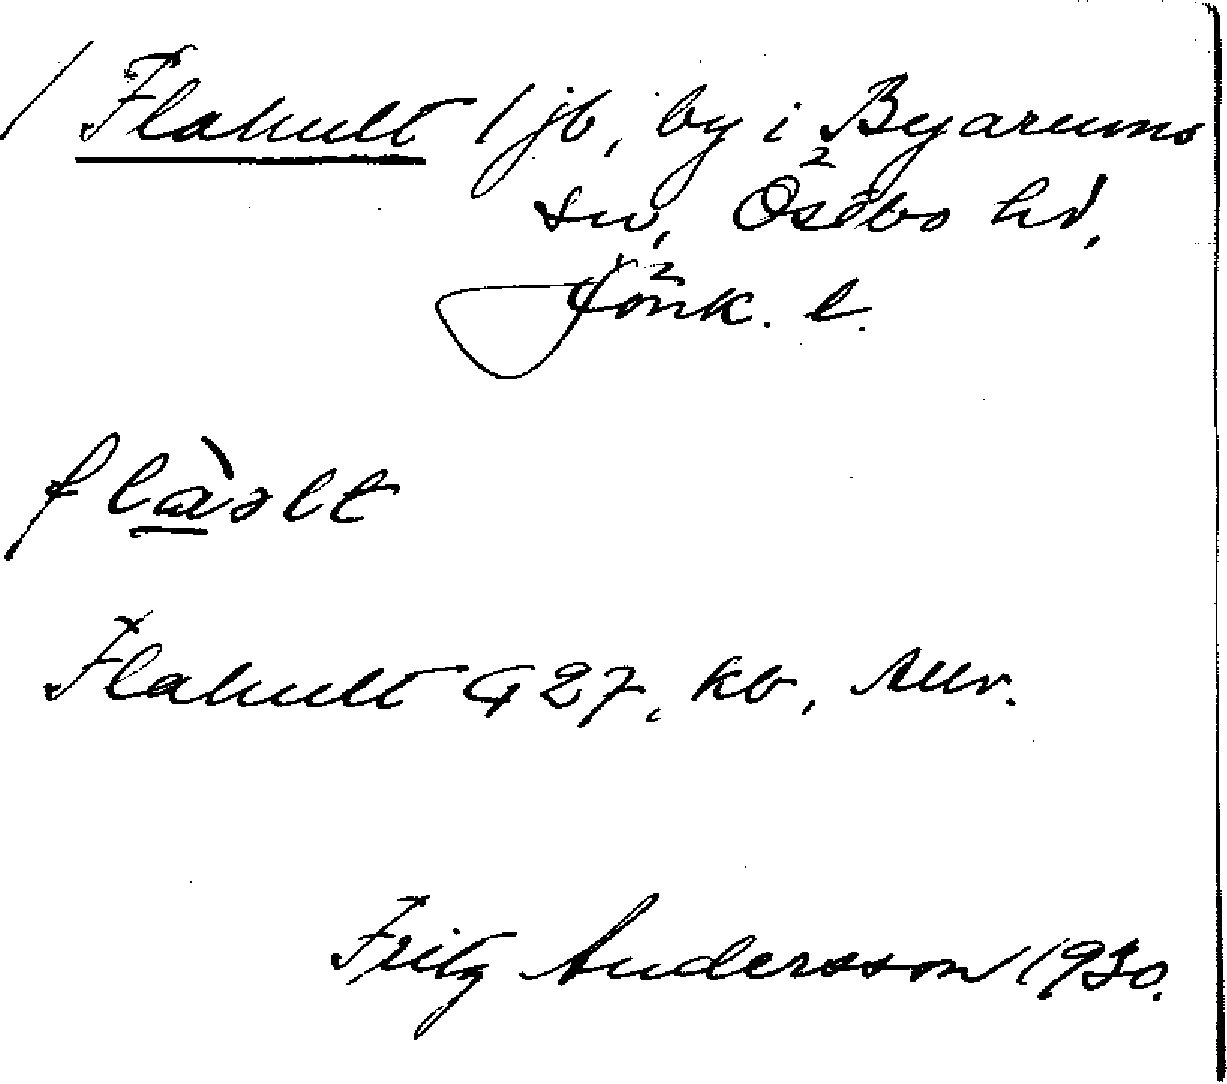 / Flahult / jb, by i Byarums
sn, Östbo hd,
Jönk. l.
flàəlt
Flahult G 27, kb, Mtr.
Fritz Andersson 1930.